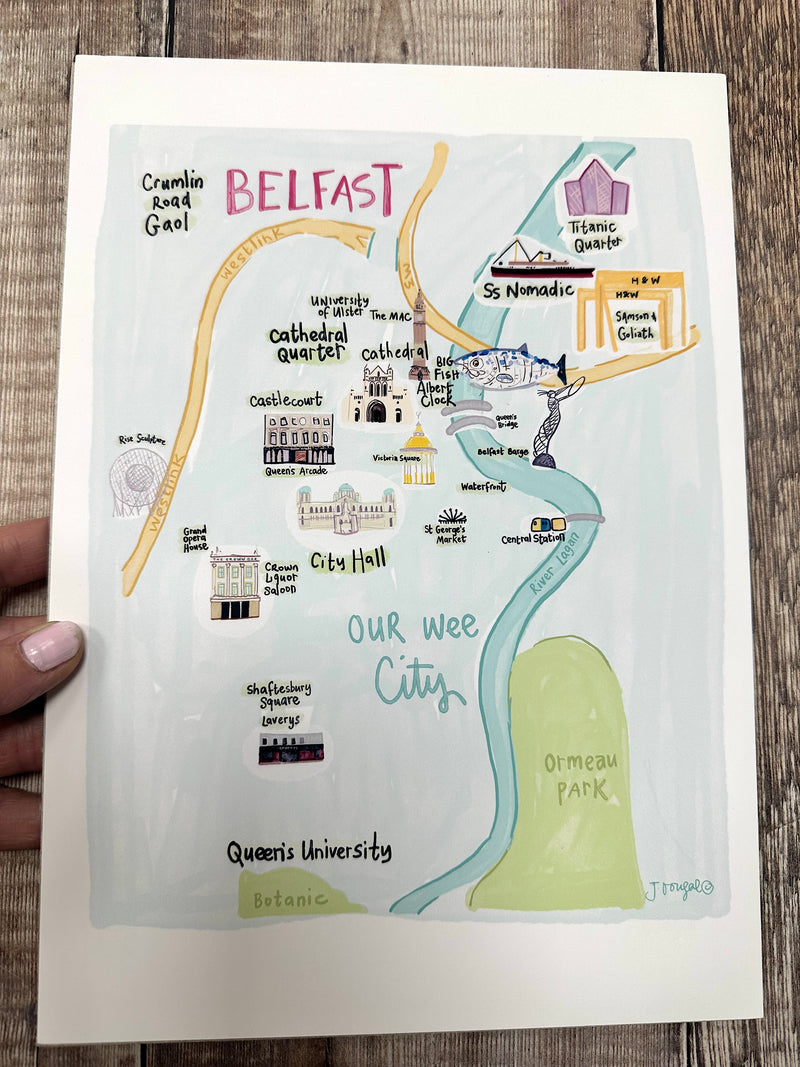 Crumlin
Road
Gaol
BELFAST
Westlink
M3
Titanic
Quarter
Ss Nomadic
H & W
H&W
Samson &
Goliath
University
of Ulster
The MAC
Cathedral
Quarter
Cathedral
BIG
FISH
Albert
Clock
Castlecourt
Queen's
Bridge
Rise Sculpture
Queen's Arcade
Victoria Square
Belfast Barge
Westlink
Waterfront
Grand
Opera
House
THE CROWN BAR
Crown
Liquor
Saloon
City Hall
St George's
Market
Central Station
River Lagan
OUR wee
City
Shaftesbury
Square
Laverys
Ormeau
PARK
Queen's University
Botanic
J Dougal ©